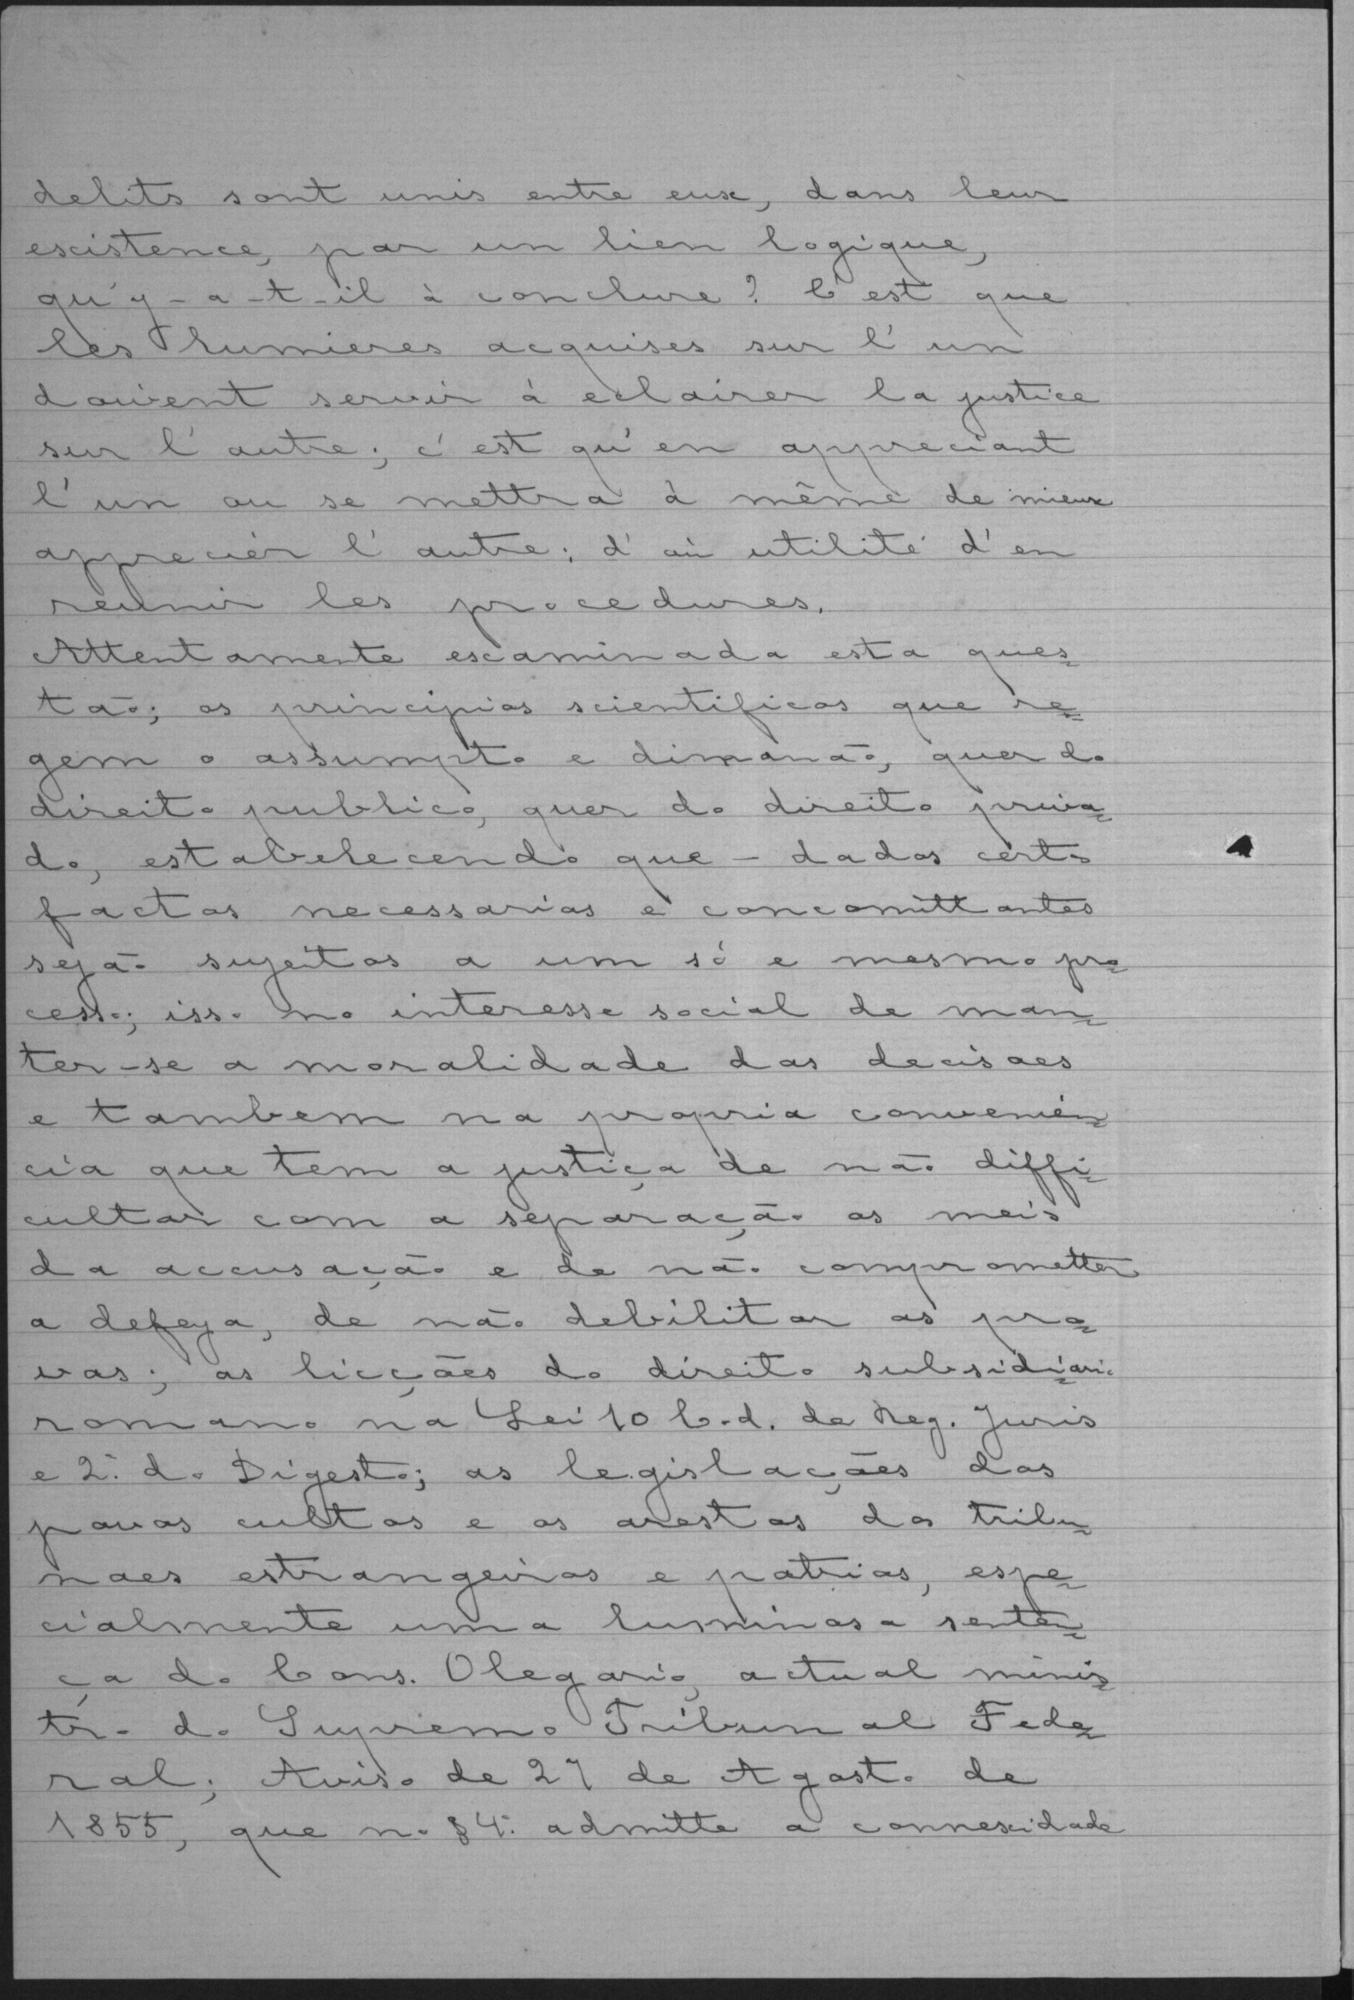 delits sont unis entre eux, dans leur
existence, par un lien logique,
qu'y-a-t-il à conclure? C'est que
les lumieres acquises sur l'un
doivent servir à eclairer la justice
sur l'autre; c'est qu'en appreciant
l'un on se mettra à même de mieux
apprecier l'autre; d'où utilité d'en
reunir les procedures.
Attentamente examinada esta ques=
tão; os principios scientificos que re=
gem o assumpto e dimanão, quer do
direito publico, quer do direito priva=
do, estabelecendo que - dados certos
factos necessarios e concomittantes
sejão sujeitos a um só e mesmo pro=
cesso; isso no interesse social de man=
ter-se a moralidade das decisoes
e tambem na propria convenien=
cia que tem a justiça de não diffi=
cultar com a separação os meis
da accusação e de não comprometter
a defeza, de não debilitar as pro=
vas; as licções do direito subsidiario
romano na Lei 10 C. d. de Reg. Juris
e 2ª do Digesto; as legislações dos
povos cultos e os arestos dos tribu=
naes estrangeiros e patrios, espe=
cialmente uma luminosa senten=
ça do Cons. Olegario, actual minis=
tro do Supremo Tribunal Fede=
ral; Aviso de 27 de Agosto de
1855, que no § 4º admitte a connexidade